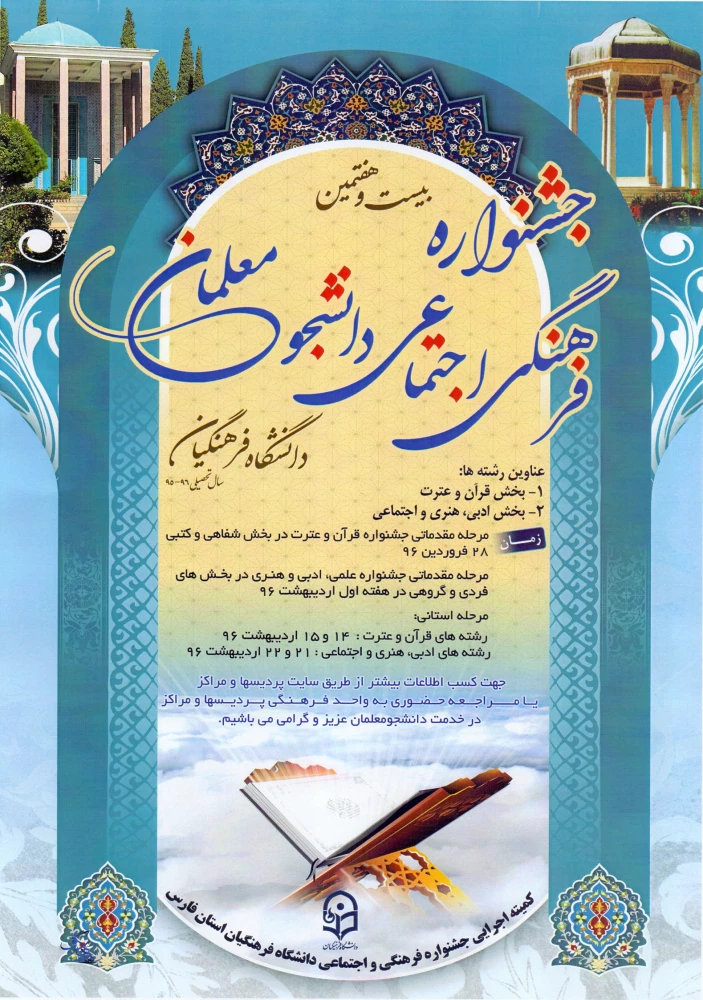 بیست و هفتمین
جشنواره
فرهنگی اجتماعی دانشجو معلمان
دانشگاه فرهنگیان
سال تحصیلی ۹۶-۹۵
عناوین رشته ها:
۱- بخش قرآن و عترت
۲- بخش ادبی، هنری و اجتماعی
زمان
مرحله مقدماتی جشنواره قرآن و عترت در بخش شفاهی و کتبی
۲۸ فروردین ۹۶
مرحله مقدماتی جشنواره علمی، ادبی و هنری در بخش های
فردی و گروهی در هفته اول اردیبهشت ۹۶
مرحله استانی:
رشته های قرآن و عترت : ۱۴ و ۱۵ اردیبهشت ۹۶
رشته های ادبی، هنری و اجتماعی : ۲۱ و ۲۲ اردیبهشت ۹۶
جهت کسب اطلاعات بیشتر از طریق سایت پردیسها و مراکز
یا مراجعه حضوری به واحد فرهنگی پردیسها و مراکز
در خدمت دانشجومعلمان عزیز و گرامی می باشیم.
دانشگاه فرهنگیان
کمیته اجرایی جشنواره فرهنگی و اجتماعی دانشگاه فرهنگیان استان فارس